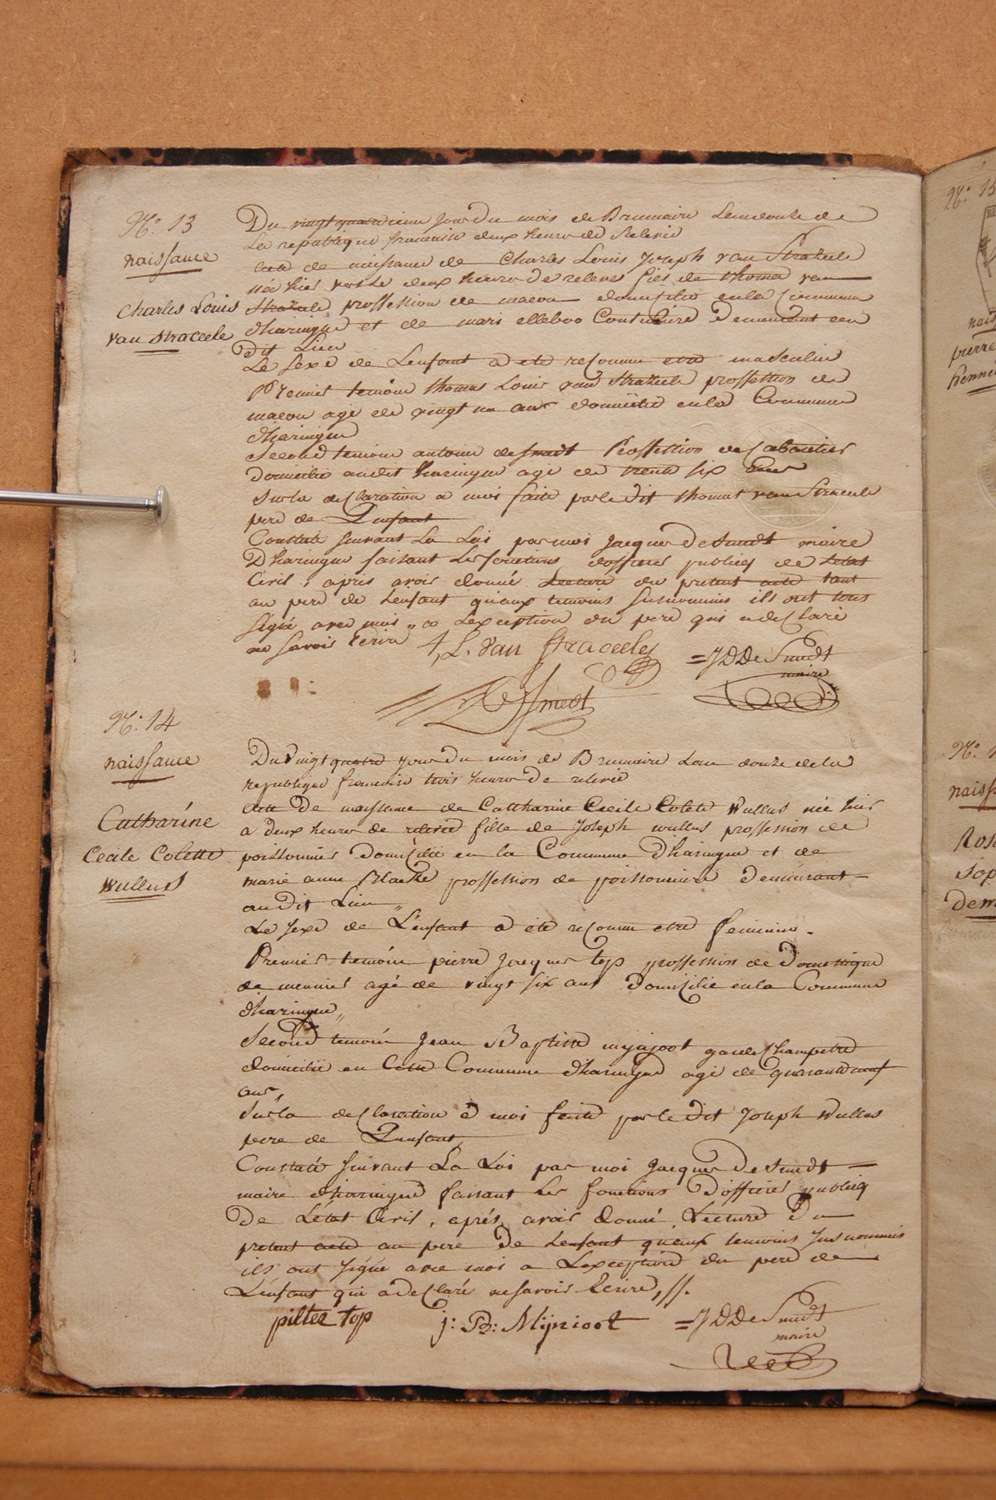 N.° 13
naissance
Charles Louis
van Straceele
Du vingt quatrieme jour du mois de Brumaire L'an douze de
La republique francaise deux heures de Relevée
acte de naissance de Charles Louis Joseph van Strakele
né hier vers le deux heures de relevee fils de thomas van
Strakele proffession de macon domicilié en la Commune
d'haringue et de marie elleboo Couturiere demeurant au
dit Lieu
Le sexe de L'enfant a eté reconnu etre masculin
Premier temoin thomas Louis van Strakele proffession de
macon agé de vingt un ans domicilié en la Commune
d'haringue
Second temoin antoine desmedt Proffession de Cabaretier
domicilié audit haringue agé de trente six ans
Sur la declaration a moi faite par le dit thomas van Stracele
pere de L'enfant
Constaté suivant La Loi par moi Jacques De Smedt maire
D'haringue faisant les fonctions d'officier publicq de L'etat
Civil, apres avoir donné Lecture du present acte tant
au pere de L'enfant qu'aux temoins susnommés ils ont tous
signé avec moi a L'exception du pere qui a declaré
ne savoir Ecrire t, L. van Straceele =JD De Smedt
maire
Desmedt
N.° 14
naissance
Catharine
Cecile Colette
Wullus
Du Vingt quatre jour du mois de Brumaire L'an douze de la
republique francaise trois heures de relevée
Acte de naissance de Catharine Cecile Colete Wullus née hier
a deux heures de relevée fille de Joseph wullus profession de
poissonnier domicilié en la Commune d'haringue et de
marie anne Blaeke proffession de poissonniere demeurant
audit Lieu„
Le sexe de L'enfant a eté reconnu etre feminin.
Premier temoin pierre Jacques top proffession de Domestique
de meunier agé de vingt six ans domicilié en la Commune
d'haringue„
Second temoin Jean Baptiste garde Champetre
domicilié en Cette Commune d'haringue agé de quarante neuf
ans,
Sur la declaration a moi faite par le dit Joseph Wullus
pere de L'enfant
Constaté suivant La Loi par moi Jacques De Smedt
maire d'haringue faisant les fonctions D'officier publicq
De L'état Civil, aprés avoir donné Lecture du
present acte au pere de L'enfant qu'aux temoins susnommés
ils ont signé avec moi a L'exception du pere de
L'enfant qui a declaré ne savoir Ecrire,//.
pieter top j: B: Mijnioot =JD De Smedt
maire
N.° 15
nais
pierre
N.°
naiss
Rosa
Sop
Dem